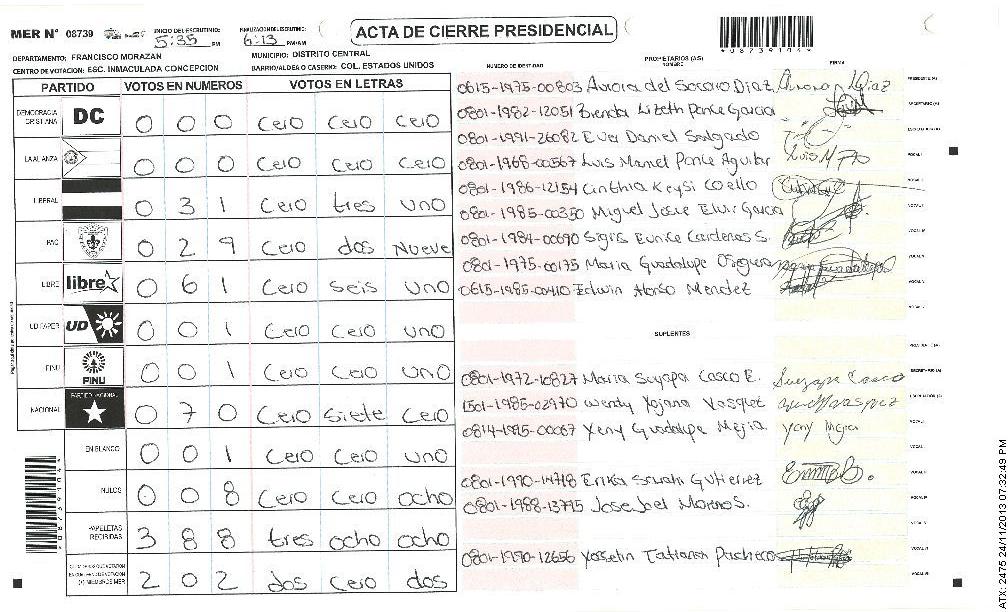 MER N° 08739 INICIO DEL ESCRUTINIO: 5:35 PM FINALIZACION DEL ESCRUTINIO: 6:13 PM/AM
ACTA DE CIERRE PRESIDENCIAL
*08739104*
DEPARTAMENTO: FRANCISCO MORAZAN MUNICIPIO: DISTRITO CENTRAL
CENTRO DE VOTACION: ESC. INMACULADA CONCEPCION BARRIO/ALDEA O CASERIO: COL. ESTADOS UNIDOS
PARTIDO VOTOS EN NUMEROS VOTOS EN LETRAS
DEMOCRACIA CRISTIANA DC 0 0 0 Cero Cero Cero
LA ALIANZA 0 0 0 Cero Cero Cero
LIBERAL 0 3 1 Cero tres uno
PAC 0 2 9 Cero dos Nueve
LIBRE libre 0 6 1 Cero Seis uno
UD FAPER UD 0 0 1 Cero Cero uno
PINU PINU 0 0 1 Cero Cero uno
NACIONAL PARTIDO NACIONAL 0 7 0 Cero Siete Cero
EN BLANCO 0 0 1 Cero Cero uno
NULOS 0 0 8 Cero Cero ocho
PAPELETAS RECIBIDAS 3 8 8 tres ocho ocho
2 0 2 dos Cero dos
NUMERO DE IDENTIDAD PROPIETARIOS (AS) NOMBRE FIRMA
0615-1975-00803 Aurora del Socorro Diaz Aurora Diaz PRESIDENTE (A)
0801-1982-12051 Brenda Lizeth Ponce Garcia SECRETARIO (A)
0801-1991-26082 Ever Daniel Salgado ESCRUTADOR (A)
0801-1968-00567 Luis Manuel Ponce Aguilar Luis M PA VOCAL I
0801-1986-12154 Cinthia Keysi Coello VOCAL II
0801-1985-00350 Miguel Josue Elvir Garcia VOCAL III
0801-1984-00690 Sigris Eunice Cardenas S. VOCAL IV
0801-1975-00175 Maria Guadalupe Oseguera VOCAL V
0615-1985-00410 Edwin Alonso Mendez
SUPLENTES
PRESIDENTE (A)
0801-1972-10827 Maria Suyapa Casco E. Suyapa Casco SECRETARIO (A)
1501-1985-02970 Wendy Yojana Vasquez ESCRUTADOR (A)
0814-1995-00067 Yeny Guadalupe Mejia Yeny Mejia VOCAL I
0801-1990-14718 Erika Sarahi Gutierrez VOCAL III
0801-1988-13795 Jose Joel Moreno S. VOCAL IV
0801-1990-12656 Yosselin Tatiana Pacheco VOCAL VI
ATX: 2475 24/11/2013 07:32:49 PM